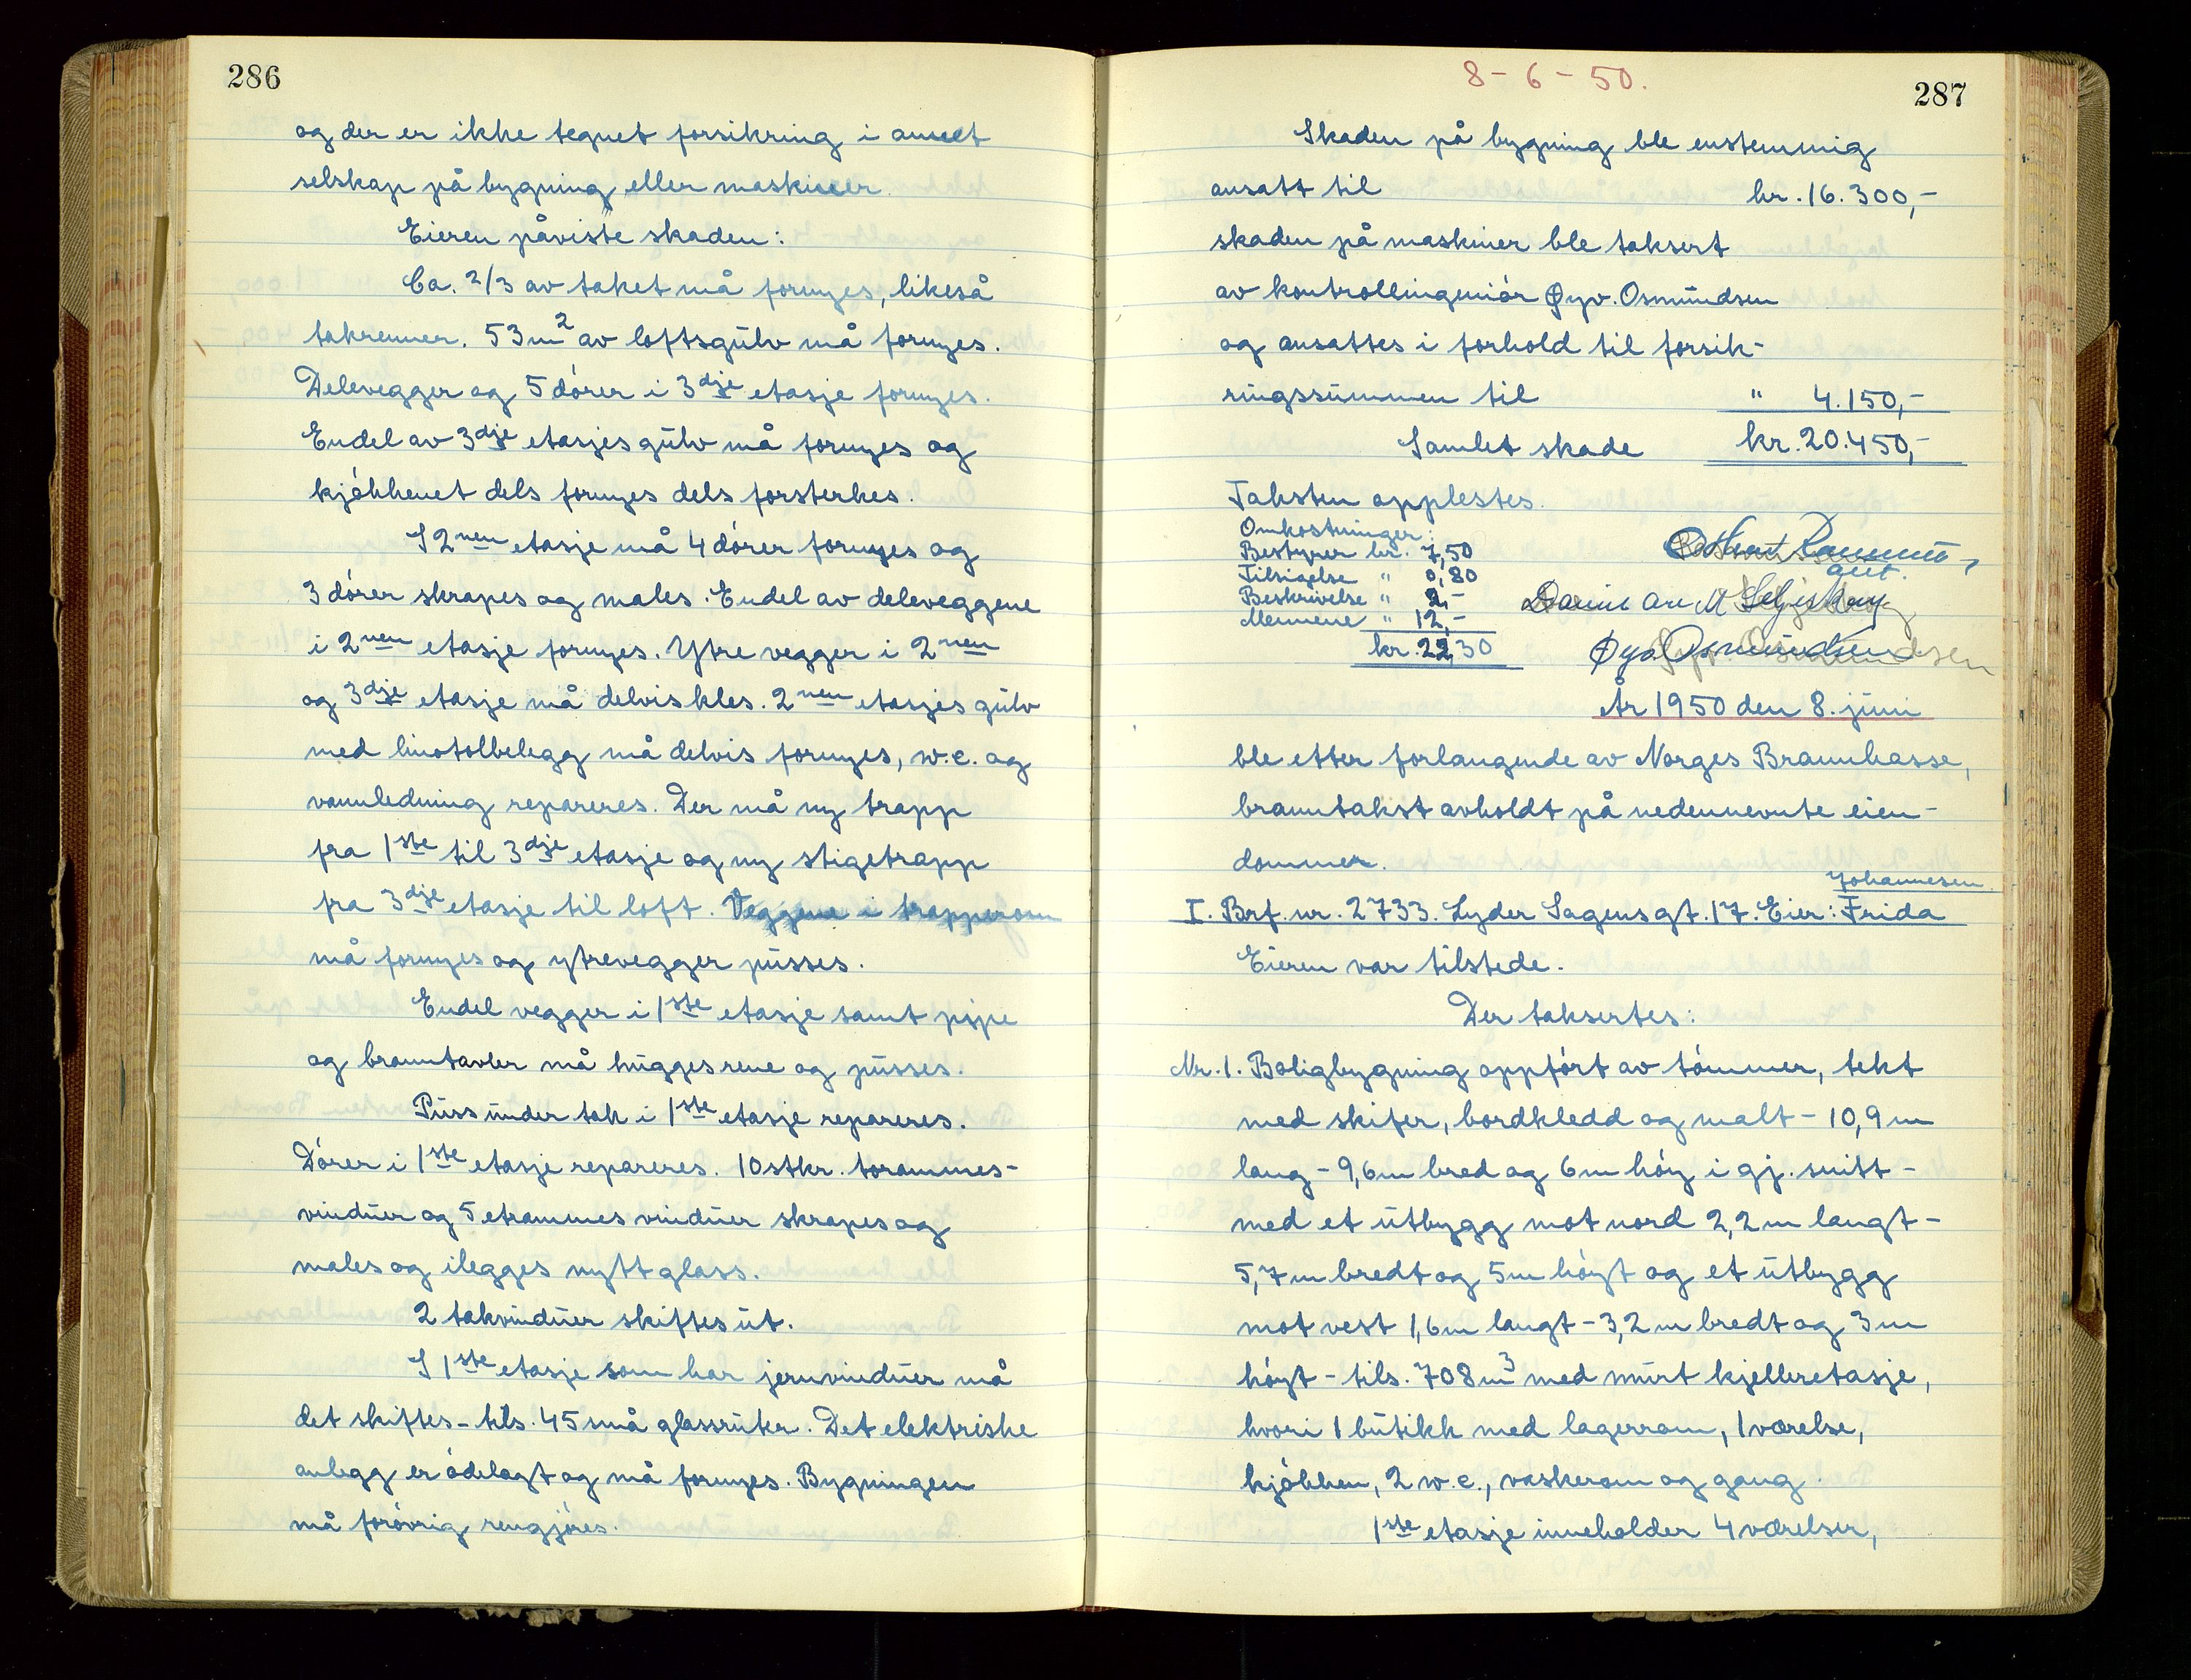 286
og der er ikke tegnet forsikring i annet
selskap på bygning eller maskiner.
Eieren påviste skaden:
Ca. 2/3 av taket må fornyes, likeså
takrenner. 53 m² av loftsgulv må fornyes.
Delevegger og 5 dører i 3dje etasje fornyes.
Endel av 3dje etasjes gulv må fornyes og
kjøkkenet dels fornyes dels forsterkes.
I 2nen etasje må 4 dører fornyes og
3 dører skrapes og males. Endel av deleveggene
i 2nen etasje fornyes. Ytre vegger i 2nen
og 3dje etasje må delvis kles. 2nen etasjes gulv
med linotolbelegg må delvis fornyes, w.c. og
vannledning repareres. Der må ny trapp
fra 1ste til 3dje etasje og ny stigetrapp
fra 3dje etasje til loft. Veggene i trapperom
må fornyes og ytrevegger pusses.
Endel vegger i 1ste etasje samt pipe
og branntavler må hugges rene og pusses.
Puss under tak i 1ste etasje repareres.
Dører i 1ste etasje repareres. 10 stkr. torammes-
vinduer og 5 etrammes vinduer skrapes og
males og ilegges nytt glass.
2 takvinduer skiftes ut.
I 1ste etasje som har jernvinduer må
det skiftes - tils. 45 små glassruter. Det elektriske
anlegg er ødelagt og må fornyes. Bygningen
må forøvrig rengjøres.
8-6-50.
287
Skaden på bygning ble enstemmig
ansatt til kr. 16.300,-
skaden på maskiner ble taksert
av kontrollingeniør Øyv. Osmundsen
og ansattes i forhold til forsik-
ringssummen til " 4.150,-
Samlet skade kr. 20.450,-
Taksten opplestes.
Omkostninger:
Bestyrer kr. 7,50
Tilsigelse " 0,80
Beskrivelse " 2,-
Mennene " 12,-
kr. 22,30
Øyv. Osmundsen
År 1950 den 8. juni
ble etter forlangende av Norges Brannkasse,
branntakst avholdt på nedennevnte eien-
dommer.
Johannesen.
I. Brf. nr. 2733. Lyder Sagens gt. 17. Eier: Frida
Eieren var tilstede.
Der taksertes:
Nr. 1. Boligbygning oppført av tømmer, tekt
med skifer, bordkledd og malt - 10,9 m
lang - 9,6 m bred og 6 m høy i gj. snitt -
med et utbygg mot nord 2,2 m langt -
5,7 m bredt og 5 m høyt og et utbygg
mot vest 1,6 m langt - 3,2 m bredt og 3 m
høyt - tils. 708 m³ med murt kjelleretasje,
hvori 1 butikk med lagerrom, 1 værelse,
kjøkken, 2 w.c., vaskerom og gang.
1ste etasje inneholder 4 værelser,